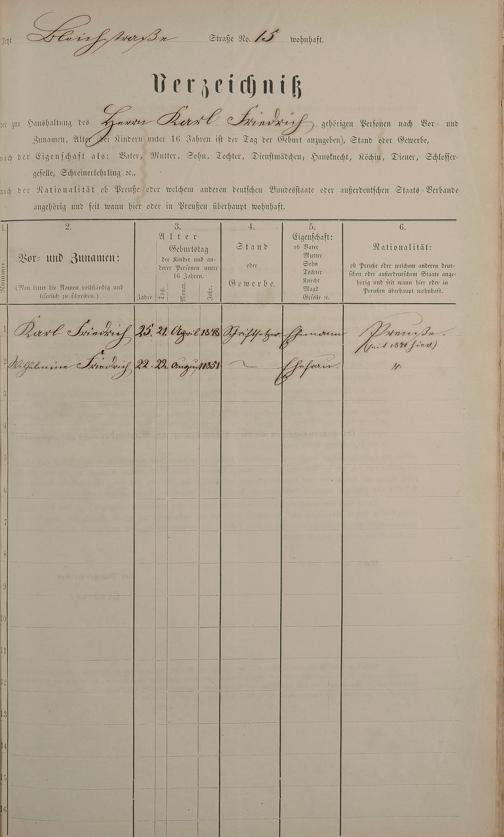 Jetzt Bleichstraße Straße No. 15 wohnhaft.
Verzeichniß
der zur Haushaltung des Herrn Karl Friedrich gehörigen Personen nach Vor- und
Zunamen, Alter (bei Kindern unter 16 Jahren ist der Tag der Geburt anzugeben), Stand oder Gewerbe,
nach der Eigenschaft als: Vater, Mutter, Sohn, Tochter, Dienstmädchen, Hausknecht, Köchin, Diener, Schlosser-
geselle, Schreinerlehrling ꝛc.,
nach der Nationalität ob Preuße oder welchem anderen deutschen Bundesstaate oder außerdeutschen Staats-Verbande
angehörig und seit wann hier oder in Preußen überhaupt wohnhaft.
1. 2. 3. 4. 5. 6.
Nummer.
Vor- und Zunamen:
(Man bittet die Namen vollständig und
leserlich zu schreiben.)
Alter
Geburtstag
der Kinder und an-
derer Personen unter
16 Jahren.
Jahre Tag. Monat. Jahr.
Stand
oder
Gewerbe.
Eigenschaft:
ob Vater
Mutter
Sohn
Tochter
Knecht
Magd
Geselle ꝛc.
Nationalität:
ob Preuße oder welchem anderen deut-
schen oder außerdeutschen Staate ange-
hörig und seit wann hier oder in
Preußen überhaupt wohnhaft.
1 Karl Friedrich 25 21. April 1848 Schriftsetzer Ehemann Preuße.
(seit hier)
2 Wilhelmine Friedrich 22 22. August 1851 — Ehefrau "
3
4
5
6
7
8
9
10
11
12
13
14
15
16